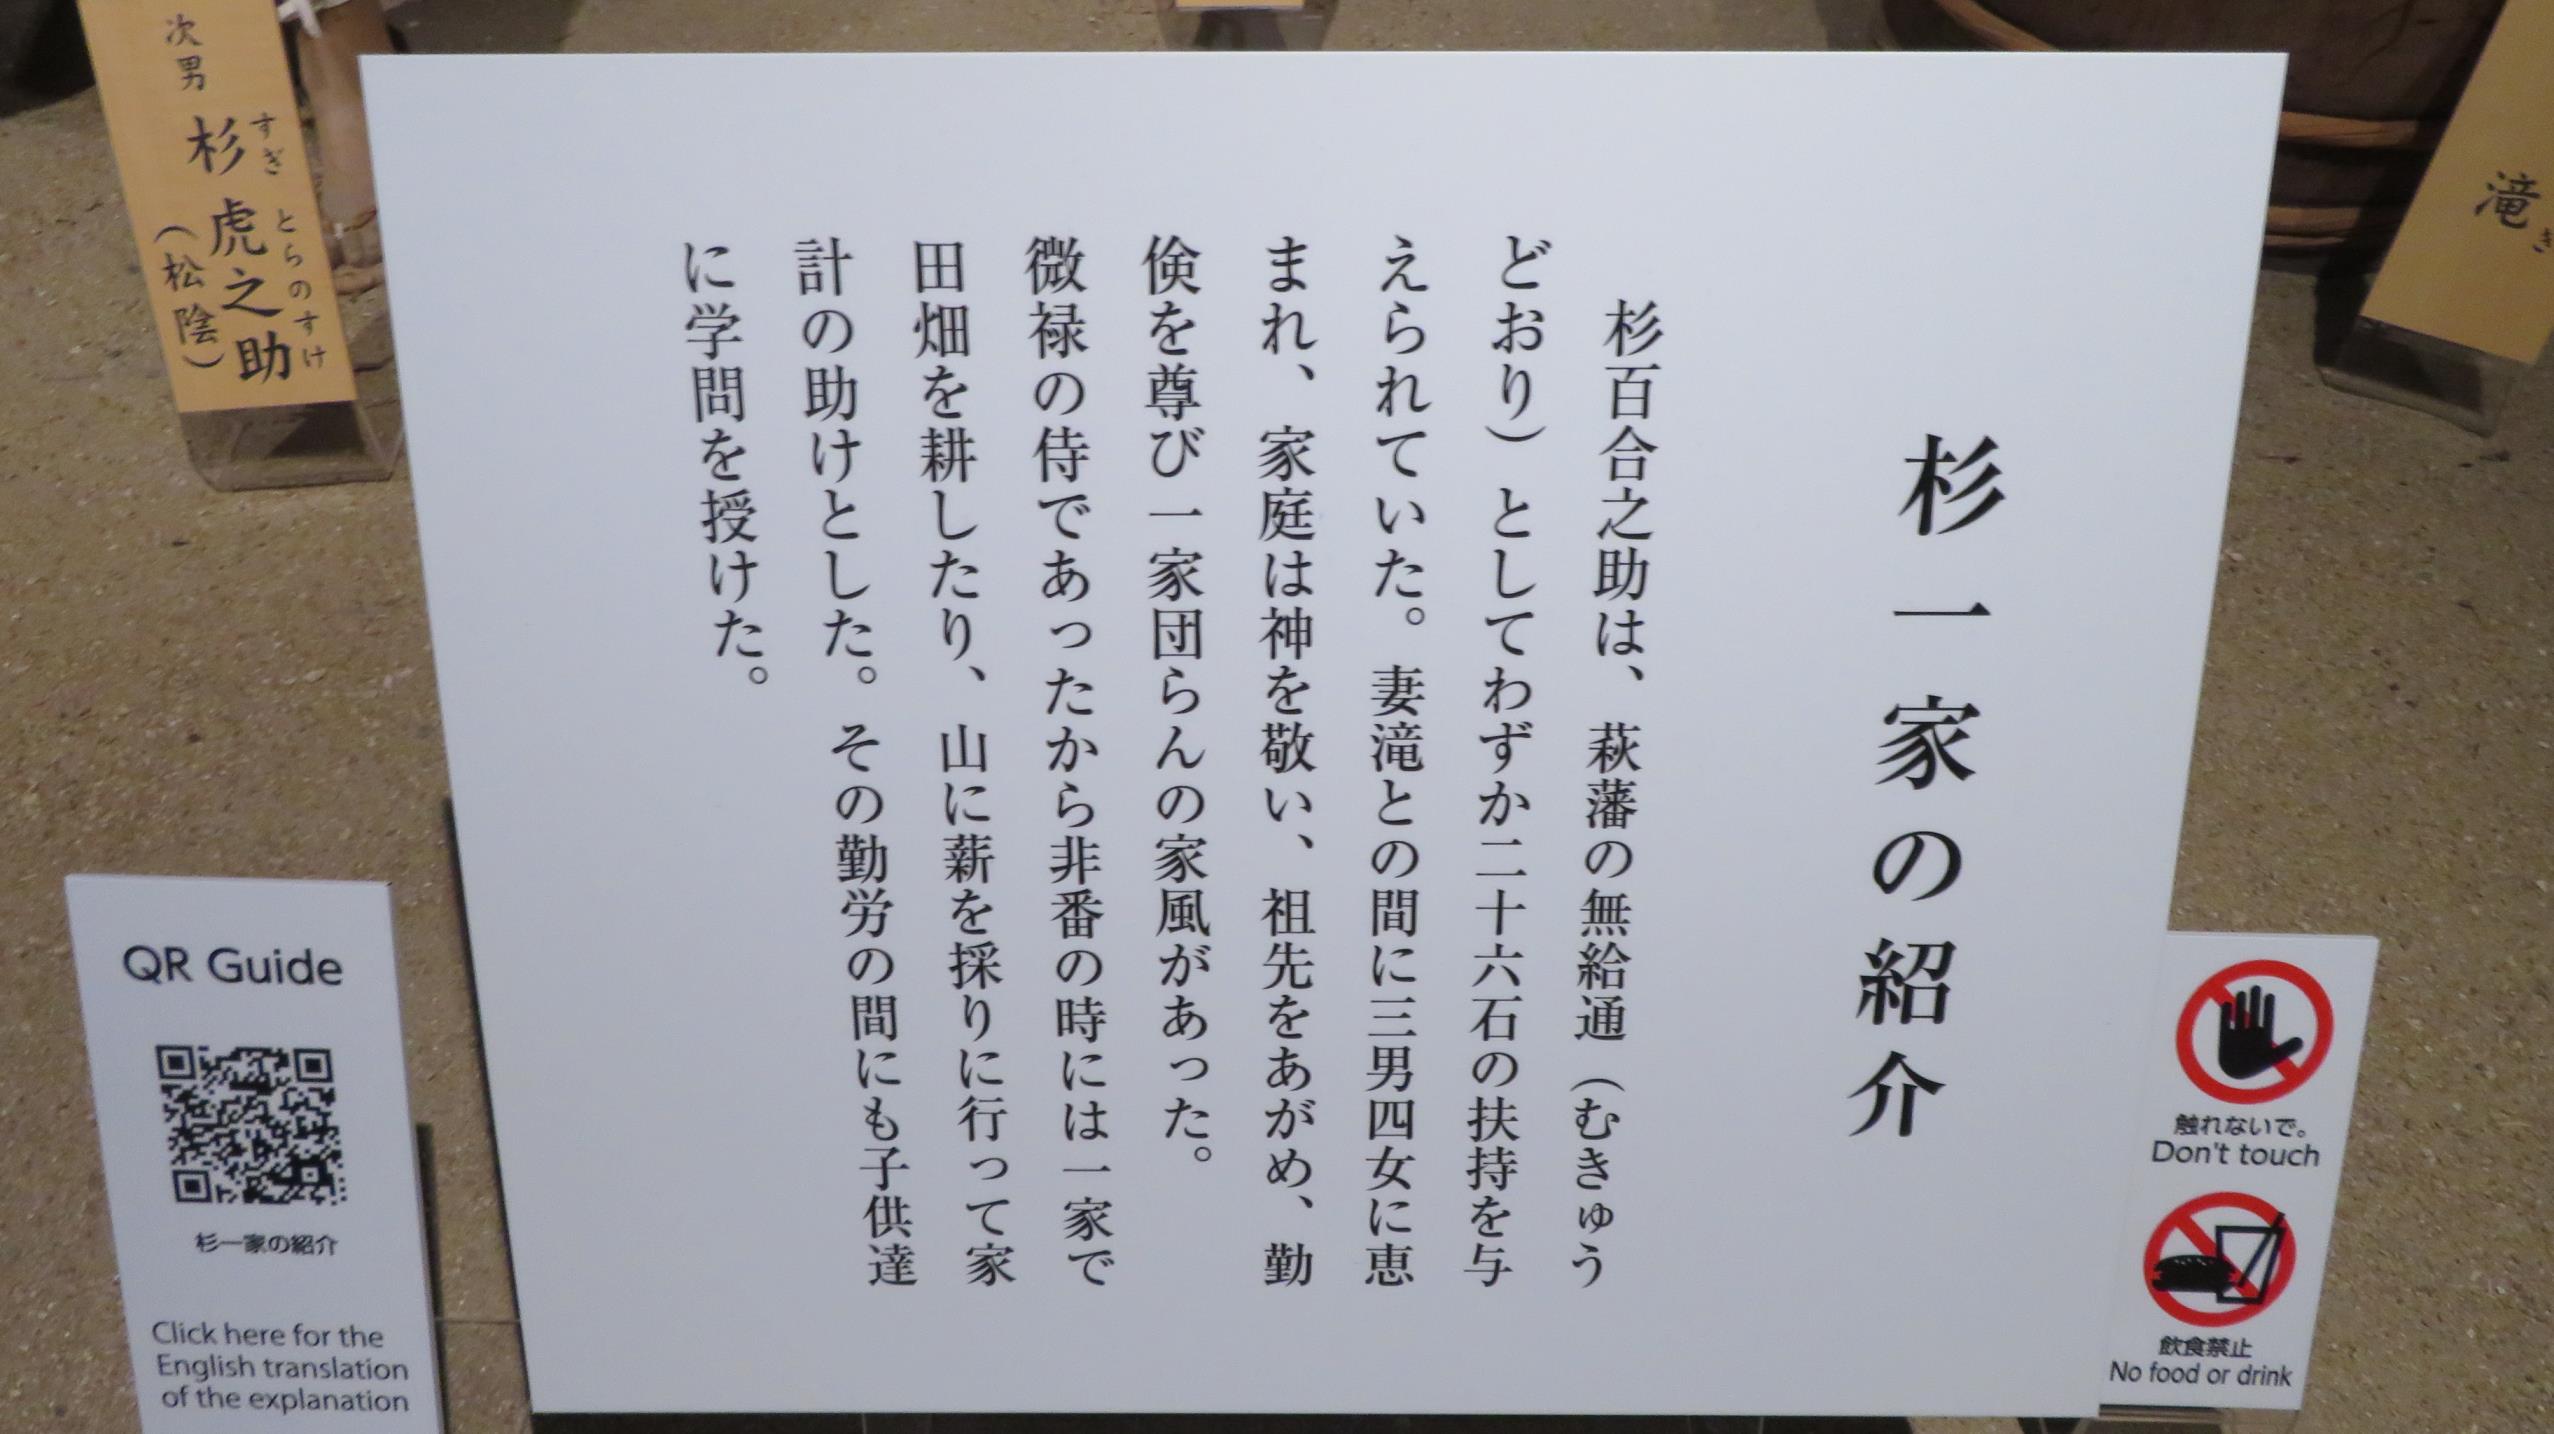 杉一家の紹介
杉百合之助は、萩藩の無給通（むきゅう
どおり）としてわずか二十六石の扶持を与
えられていた。妻滝との間に三男四女に恵
まれ、家庭は神を敬い、祖先をあがめ、勤
倹を尊び一家団らんの家風があった。
微禄の侍であったから非番の時には一家で
田畑を耕したり、山に薪を採りに行って家
計の助けとした。その勤労の間にも子供達
に学問を授けた。
次男
杉虎之助
すぎ とらのすけ
（松陰）
滝
QR Guide
杉一家の紹介
Click here for the
English translation
of the explanation
触れないで。
Don't touch
飲食禁止
No food or drink